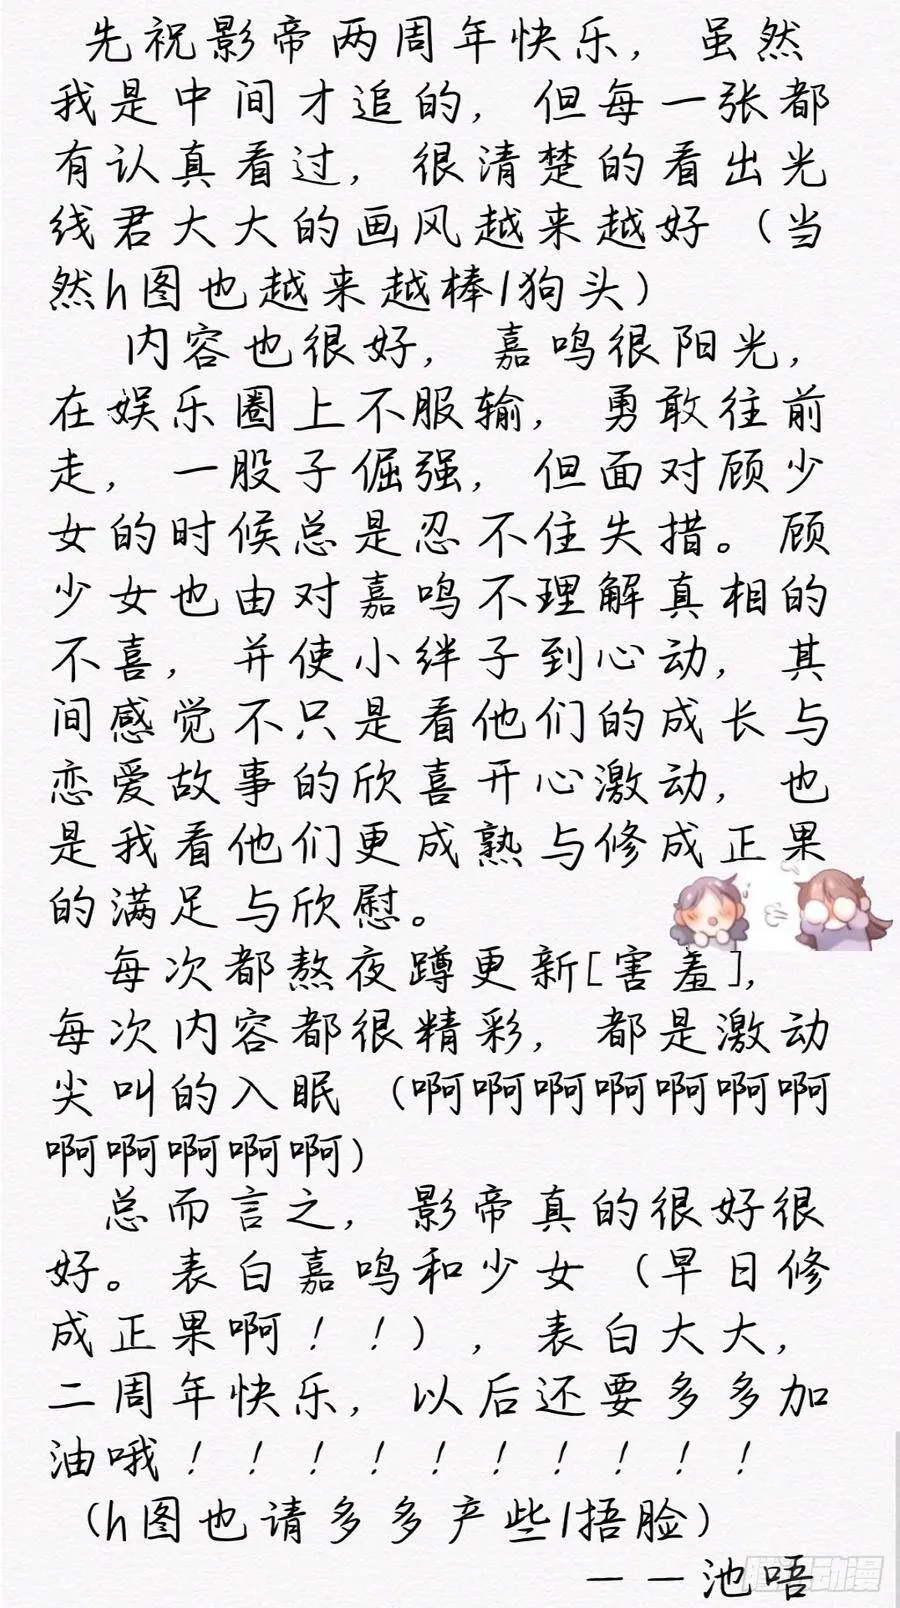 先祝影帝两周年快乐，虽然
我是中间才追的，但每一张都
有认真看过，很清楚的看出光
线君大大的画风越来越好（当
然h图也越来越棒/狗头）
内容也很好，嘉鸣很阳光，
在娱乐圈上不服输，勇敢往前
走，一股子倔强，但面对顾少
女的时候总是忍不住失措。顾
少女也由对嘉鸣不理解真相的
不喜，并使小绊子到心动，其
间感觉不只是看他们的成长与
恋爱故事的欣喜开心激动，也
是我看他们更成熟与修成正果
的满足与欣慰。
每次都熬夜蹲更新[害羞],
每次内容都很精彩，都是激动
尖叫的入眠（啊啊啊啊啊啊啊
啊啊啊啊啊）
总而言之，影帝真的很好很
好。表白嘉鸣和少女（早日修
成正果啊！！），表白大大，
二周年快乐，以后还要多多加
油哦！！！！！！！！！！
（h图也请多多产些/捂脸）
——池唔
腾讯动漫